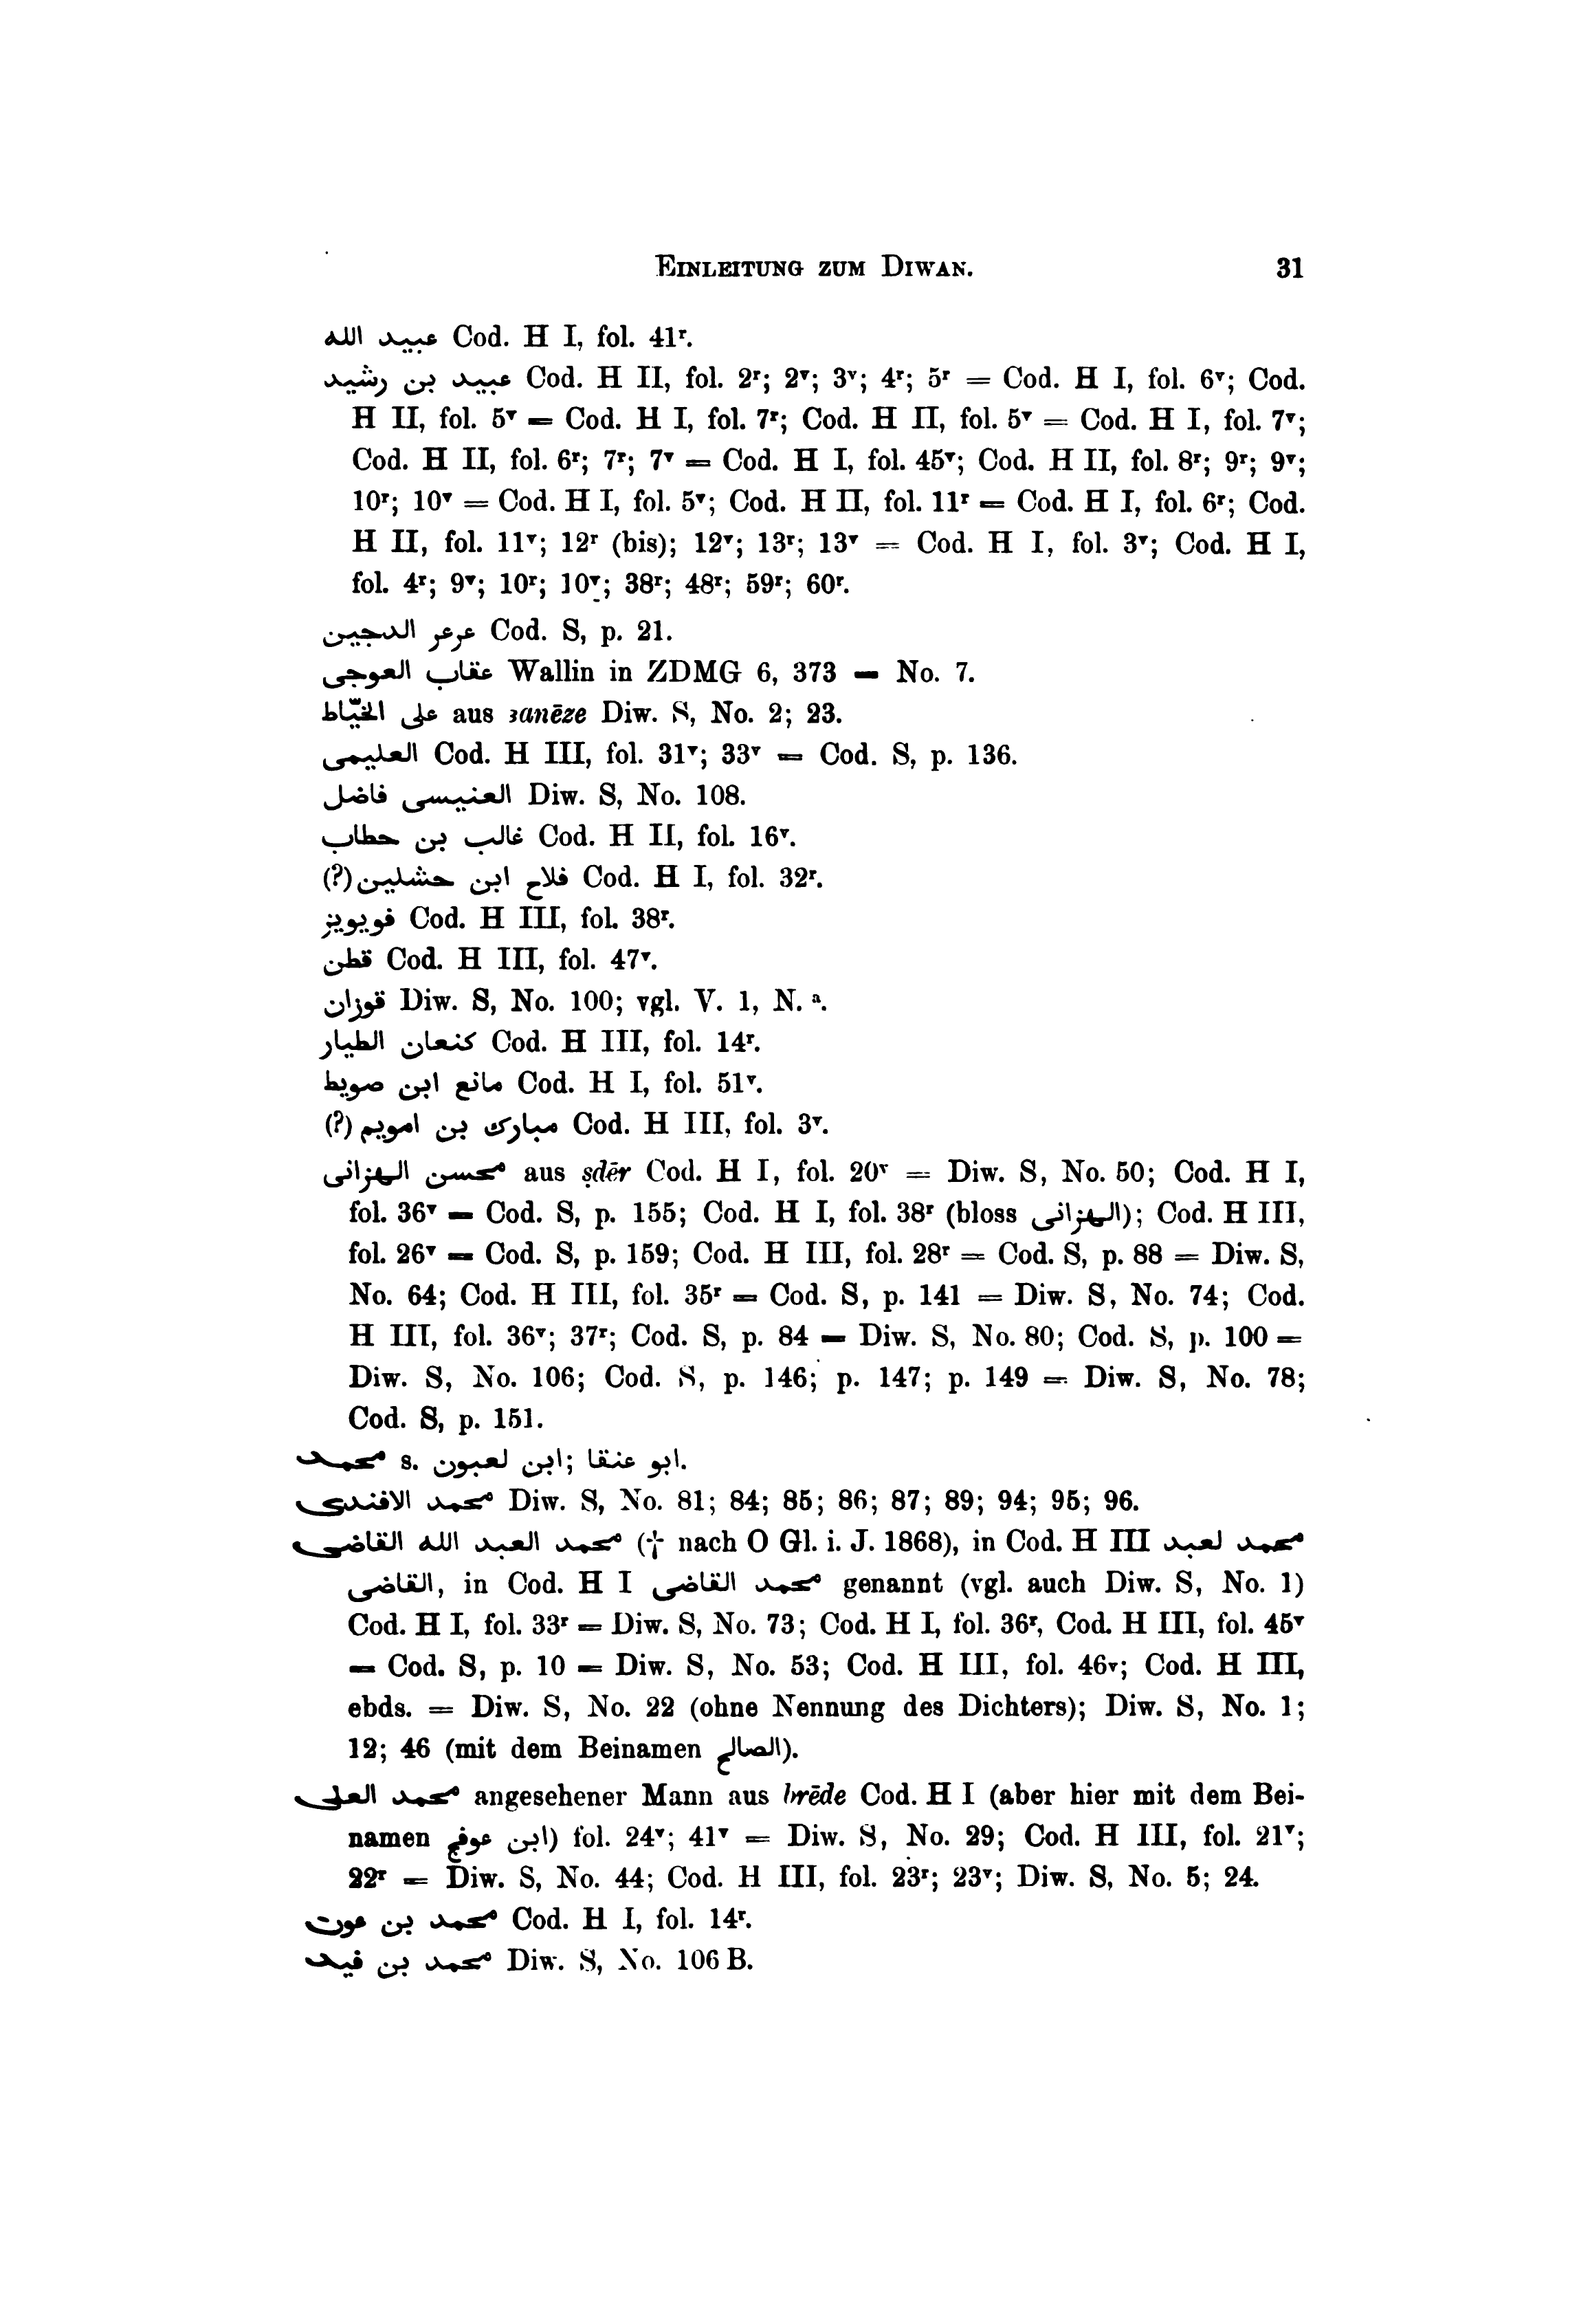 EINLEITUNG ZUM DIWAN. 31
عبيد الله Cod. H I, fol. 41ʳ.
عبيد بن رشيد Cod. H II, fol. 2ʳ; 2ᵛ; 3ᵛ; 4ʳ; 5ʳ = Cod. H I, fol. 6ᵛ; Cod.
H II, fol. 5ᵛ = Cod. H I, fol. 7ʳ; Cod. H II, fol. 5ᵛ = Cod. H I, fol. 7ᵛ;
Cod. H II, fol. 6ʳ; 7ʳ; 7ᵛ = Cod. H I, fol. 45ᵛ; Cod. H II, fol. 8ʳ; 9ʳ; 9ᵛ;
10ʳ; 10ᵛ = Cod. H I, fol. 5ᵛ; Cod. H II, fol. 11ʳ = Cod. H I, fol. 6ʳ; Cod.
H II, fol. 11ᵛ; 12ʳ (bis); 12ᵛ; 13ʳ; 13ᵛ = Cod. H I, fol. 3ᵛ; Cod. H I,
fol. 4ʳ; 9ᵛ; 10ʳ; 10ᵛ; 38ʳ; 48ʳ; 59ʳ; 60ʳ.
عرعر الدجين Cod. S, p. 21.
عقاب العوجى Wallin in ZDMG 6, 373 = No. 7.
على الخيّاط aus ʿanēze Diw. S, No. 2; 23.
العليمى Cod. H III, fol. 31ᵛ; 33ᵛ = Cod. S, p. 136.
العنيسى فاضل Diw. S, No. 108.
غالب بن حطاب Cod. H II, fol. 16ᵛ.
فلاح ابن حشلين(?) Cod. H I, fol. 32ʳ.
فويويز Cod. H III, fol. 38ʳ.
قطن Cod. H III, fol. 47ᵛ.
قوزان Diw. S, No. 100; vgl. V. 1, N. ᵃ.
كنعان الطيار Cod. H III, fol. 14ʳ.
مانع ابن صويط Cod. H I, fol. 51ᵛ.
مبارك بن امويم (?) Cod. H III, fol. 3ᵛ.
محسن الهزانى aus ṣdēr Cod. H I, fol. 20ᵛ = Diw. S, No. 50; Cod. H I,
fol. 36ᵛ = Cod. S, p. 155; Cod. H I, fol. 38ʳ (bloss الهزانى); Cod. H III,
fol. 26ᵛ = Cod. S, p. 159; Cod. H III, fol. 28ʳ = Cod. S, p. 88 = Diw. S,
No. 64; Cod. H III, fol. 35ʳ = Cod. S, p. 141 = Diw. S, No. 74; Cod.
H III, fol. 36ᵛ; 37ʳ; Cod. S, p. 84 = Diw. S, No. 80; Cod. S, p. 100 =
Diw. S, No. 106; Cod. S, p. 146; p. 147; p. 149 = Diw. S, No. 78;
Cod. S, p. 151.
محمد s. ابن لعبون; ابو عنقا.
محمد الافندى Diw. S, No. 81; 84; 85; 86; 87; 89; 94; 95; 96.
محمد العبد الله القاضى († nach O Gl. i. J. 1868), in Cod. H III محمد لعبد
القاضى, in Cod. H I محمد القاضى genannt (vgl. auch Diw. S, No. 1)
Cod. H I, fol. 33ʳ = Diw. S, No. 73; Cod. H I, fol. 36ʳ, Cod. H III, fol. 45ᵛ
= Cod. S, p. 10 = Diw. S, No. 53; Cod. H III, fol. 46ᵛ; Cod. H III,
ebds. = Diw. S, No. 22 (ohne Nennung des Dichters); Diw. S, No. 1;
12; 46 (mit dem Beinamen الصالح).
محمد العلى angesehener Mann aus brēde Cod. H I (aber hier mit dem Bei-
namen ابن عوفج) fol. 24ᵛ; 41ᵛ = Diw. S, No. 29; Cod. H III, fol. 21ᵛ;
22ʳ = Diw. S, No. 44; Cod. H III, fol. 23ʳ; 23ᵛ; Diw. S, No. 5; 24.
محمد بن عوت Cod. H I, fol. 14ʳ.
محمد بن فيد Diw. S, No. 106 B.